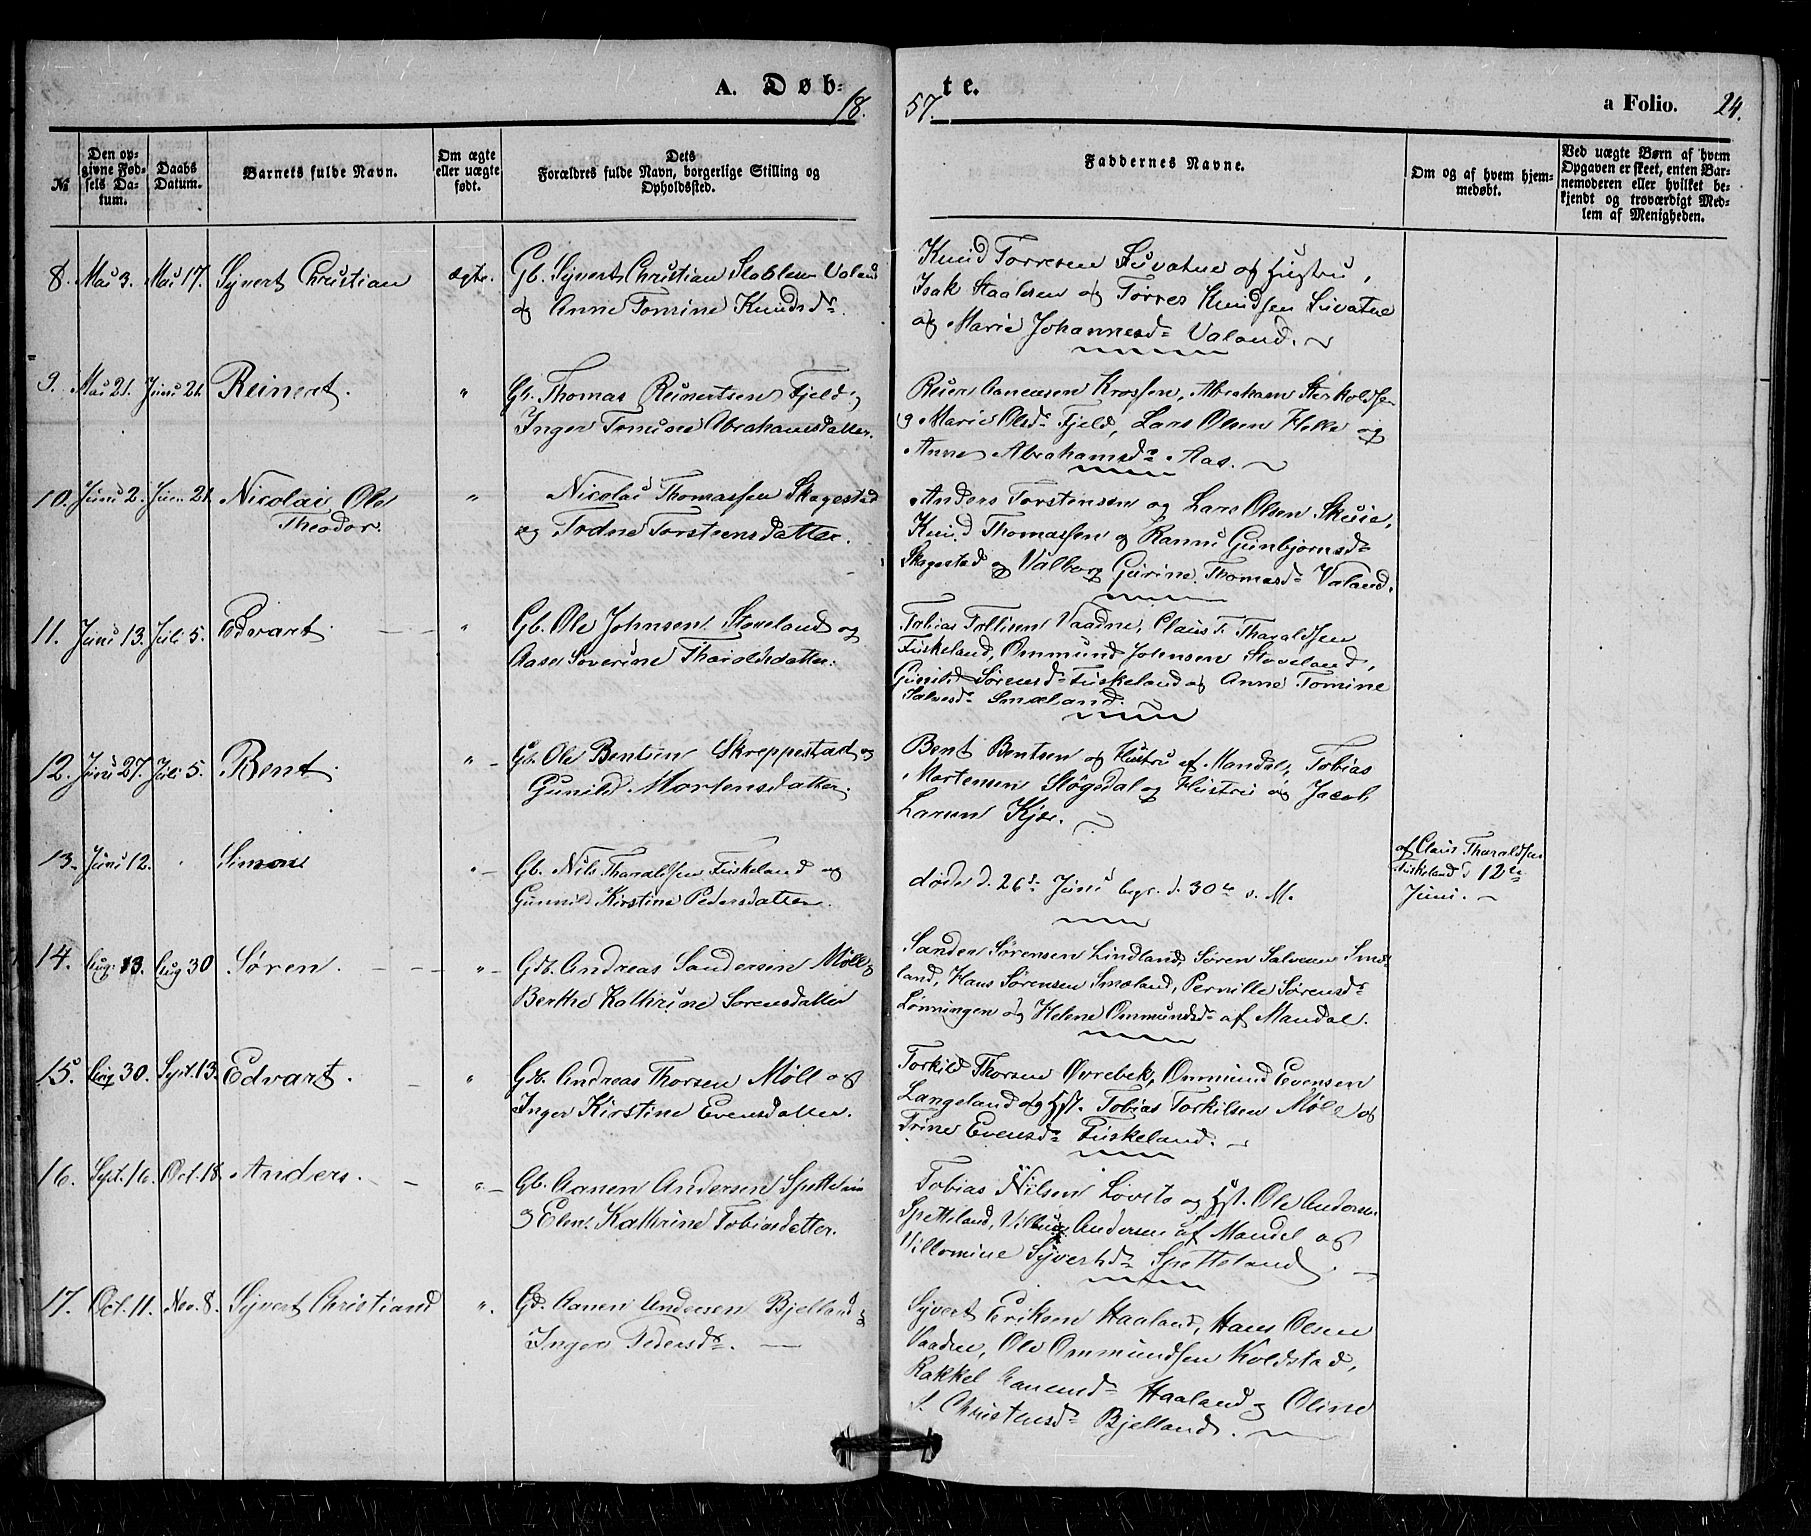 A. Døb-
te.
18
57.
a Folio. 24.
№
Den opgivne Fødsels Datum.
Daabs Datum.
Barnets fulde Navn.
Om ægte eller uægte født.
Dets
Forældres fulde Navn, borgerlige Stilling og Opholdssted.
Faddernes Navne.
Om og af hvem hjemmedøbt.
Ved uægte Børn af hvem Opgaven er skeet, enten Barnemoderen eller hvilket bekjendt og troværdigt Medlem af Menigheden.
8. Mai 3. Mai 17. Syvert Christian ægte. Gb. Syvert Christian Valand
og Anne Tomine Knudsdr.
Knud Torresen og Hustru,
Isak Staalesen og Tørres Knudsen
og Marie Johannesdr Valand.
9. Mai 21. Juni 21. Reinert. " Gb. Thomas Reinertsen Fjeld og
Inger Tomine Abrahamsdatter.
Reier Aanensen Krossen, Abraham
og Marie Olsdr Fjeld, Lars Olsen og
Anne Abrahamsdr Aas.
10. Juni 2. Juni 21. Nicolai Ole
Theodor. " Nicolai Thomassen Skagestad
og Todne Torstensdatter.
Anders Torstensen og Lars Olsen Skuie,
Knud Thomassen og Ranni Gunbjørnsdr
Skagestad og Valborg Gurine Thomasdr Valand.
11. Juni 13. Juli 5. Edvart. " Gb. Ole Johnsen Stoveland og
Aase Severine Tharaldsdatter.
Tobias Vaadne, Claus T. Tharaldsen
Fuskeland, Ommund Johnsen Stoveland,
Gunild Sørensdr Fuskeland og Anne Tomine
Salvesdr Smaland.
12. Juni 27. Juli 5. Bent. " Gb. Ole Bentsen Skreppestad og
Gunild Mortensdatter.
Bent Bentsen og Hustru af Mandal, Tobias
Mortensen Støgsdal og Hustru og Jacob
Larsen Kjær.
13. Juni 12. Simon " Gb. Nils Tharaldsen Fuskeland og
Gunnild Kirstine Pedersdatter.
døde d. 26de Juni begr. d. 30te s. M.
af Claus Tharaldsen
Fuskeland d 12te
Juni.
14. Aug. 13. Aug 30 Søren. " Gdb. Andreas Sandersen Møll og
Berthe Kathrine Sørensdatter
Sander Sørensen Lindland, Søren Salvesen Smø-
land, Hans Sørensen Smaland, Pernille Sørensdr
Lønningen og Helene Ommundsdr af Mandal.
15. Aug 30. Sept. 13. Edvart. " Gdb. Andreas Thorsen Møll og
Inger Kirstine Evensdatter.
Torkild Thorsen Øvrebek, Ommund Evensen
Langeland og Hst. Tobias Torkilsen Møll og
Trine Evensdr Fuskeland.
16. Sept. 16. Oct. 18. Anders. " Gb. Aanen Andersen Spetteland
og Kathrine Tobiasdatter.
Tobias Nilsen Løvstø og Hst. Ole Andersen
Spetteland, Andersen af Mandal og
Villomine Syvertsdr Spetteland.
17. Oct. 11. Nov. 8. Syvert Christian " Gd. Aanen Andersen Bjelland og
Inger Pedersdr.
Syvert Eriksen Haaland, Hans Olsen
Vaadne, Ole Ommundsen Koldstad,
Rakkel Aanensdr Haaland og Oline
S. Christensdr Bjelland.